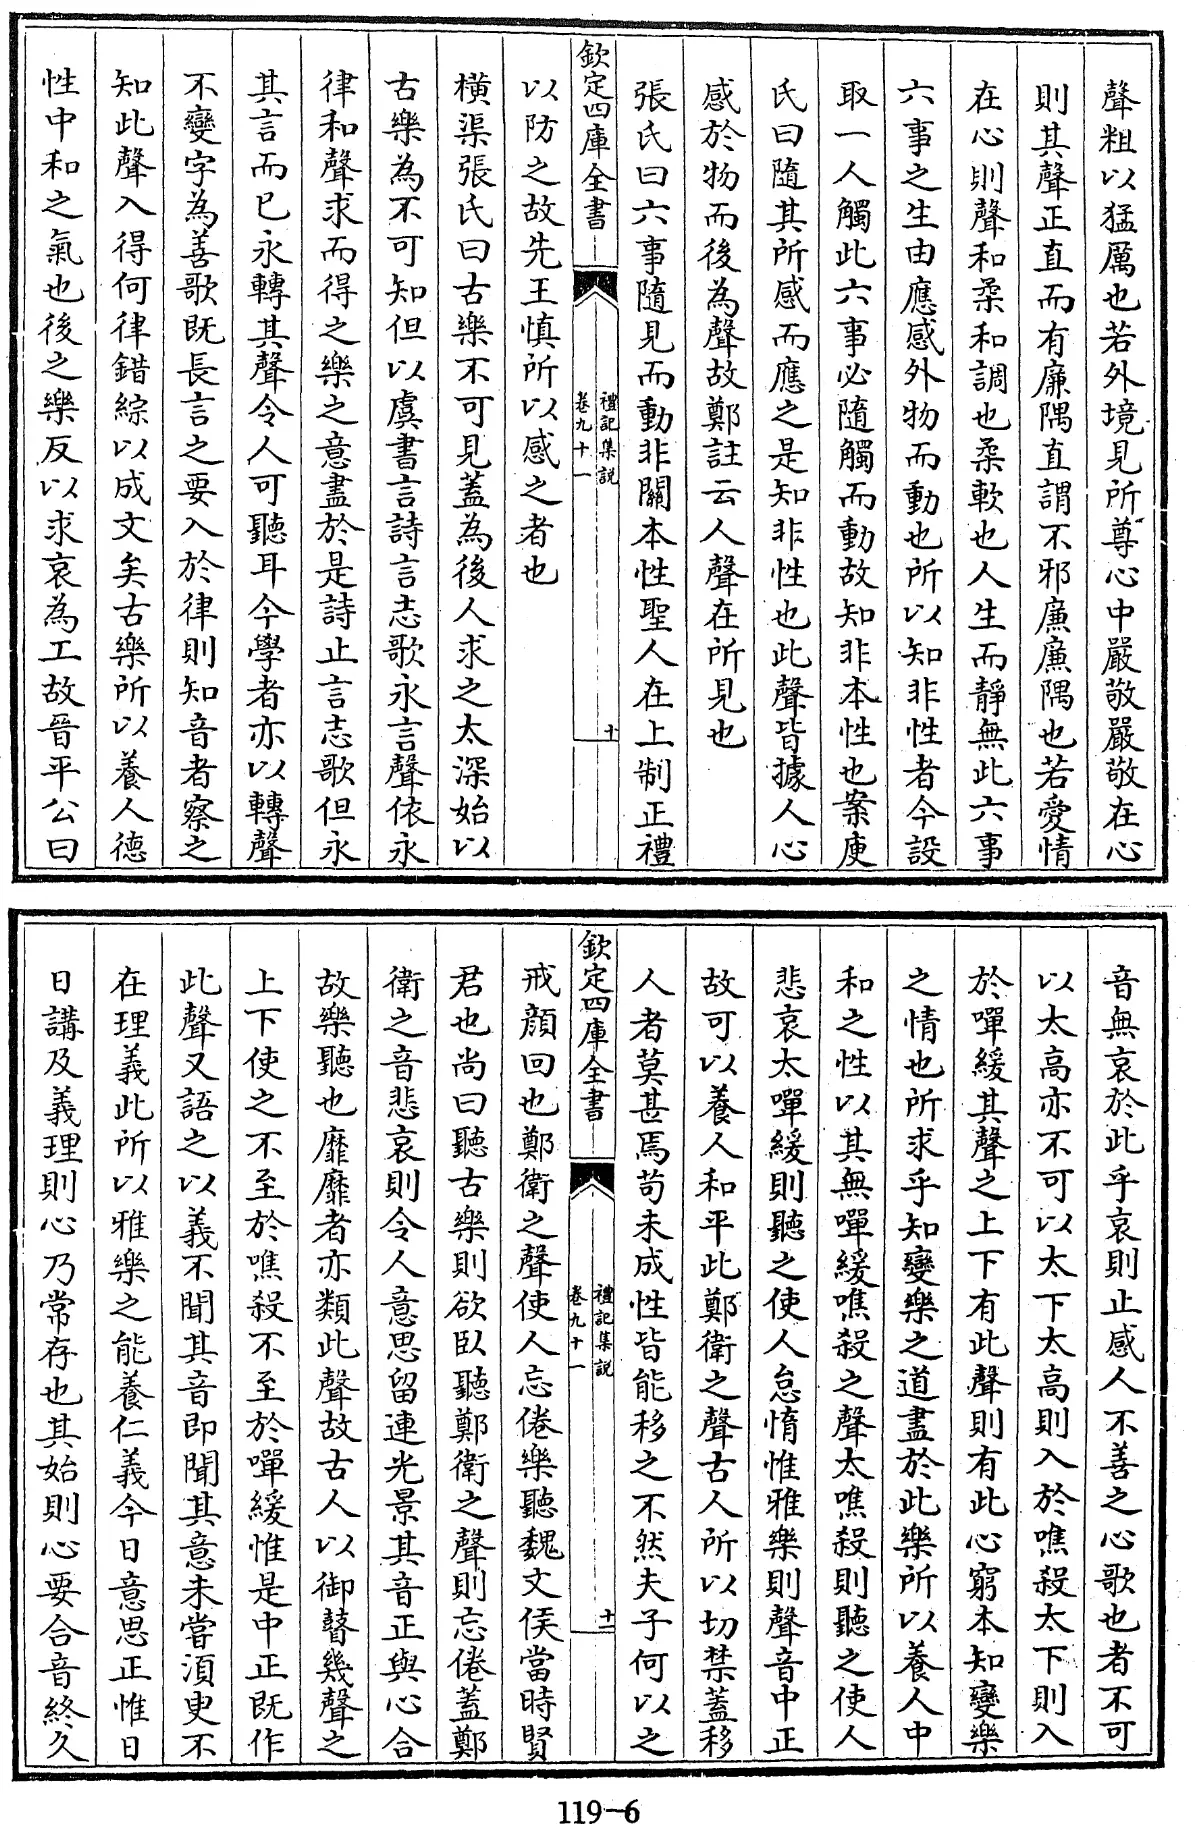 聲粗以猛厲也若外境見所尊心中嚴敬嚴敬在心
則其聲正直而有廉隅直謂不邪廉廉隅也若愛情
在心則聲和柔和調也柔軟也人生而靜無此六事
六事之生由應感外物而動也所以知非性者今設
取一人觸此六事必隨觸而動故知非本性也案庾
氏曰隨其所感而應之是知非性也此聲皆據人心
感於物而後為聲故鄭註云人聲在所見也
張氏曰六事隨見而動非關本性聖人在上制正禮
欽定四庫全書
禮記集說
卷九十一
十
以防之故先王慎所以感之者也
橫渠張氏曰古樂不可見蓋為後人求之太深始以
古樂為不可知但以虞書言詩言志歌永言聲依永
律和聲求而得之樂之意盡於是詩止言志歌但永
其言而已永轉其聲令人可聽耳今學者亦以轉聲
不變字為善歌既長言之要入於律則知音者察之
知此聲入得何律錯綜以成文矣古樂所以養人德
性中和之氣也後之樂反以求哀為工故晉平公曰
音無哀於此乎哀則止感人不善之心歌也者不可
以太高亦不可以太下太高則入於噍殺太下則入
於嘽緩其聲之上下有此聲則有此心窮本知變樂
之情也所求乎知變樂之道盡於此樂所以養人中
和之性以其無嘽緩噍殺之聲太噍殺則聽之使人
悲哀太嘽緩則聽之使人怠惰惟雅樂則聲音中正
故可以養人和平此鄭衛之聲古人所以切禁蓋移
人者莫甚焉苟未成性皆能移之不然夫子何以之
欽定四庫全書
禮記集說
卷九十一
十一
戒顏回也鄭衛之聲使人忘倦樂聽魏文侯當時賢
君也尚曰聽古樂則欲臥聽鄭衛之聲則忘倦蓋鄭
衛之音悲哀則令人意思留連光景其音正與心合
故樂聽也靡靡者亦類此聲故古人以御瞽幾聲之
上下使之不至於噍殺不至於嘽緩惟是中正既作
此聲又語之以義不聞其音即聞其意未嘗須臾不
在理義此所以雅樂之能養仁義今日意思正惟日
日講及義理則心乃常存也其始則心要合音終久
119-6